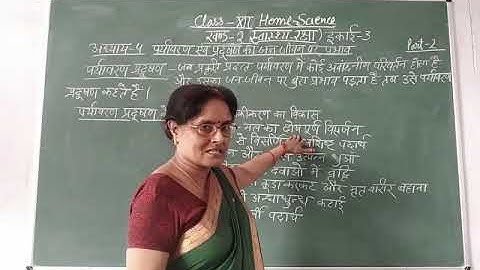 Class-XII Home-Science
खण्ड-2 (स्वास्थ्य रक्षा) इकाई-3
अध्याय-4 पर्यावरण एवं प्रदूषण का जन जीवन पर प्रभाव
Part-2
पर्यावरण प्रदूषण - जब प्रकृति प्रदत्त पर्यावरण में कोई अवांछनीय परिवर्तन होता है
और उसका जन जीवन पर बुरा प्रभाव पड़ता है तब उसे पर्यावरण
प्रदूषण कहते हैं।
पर्यावरण प्रदूषण
का विकास
मल का दोषपूर्ण विसर्जन
से विसर्जित पदार्थ
और उत्पन्न धुआँ
दवाओं में वृद्धि
कूड़ा करकट और मृत शरीर बहाना
अन्धाधुन्ध कटाई
पदार्थ